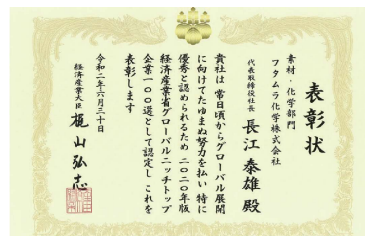 表彰状
素材・化学部門
フタムラ化学株式会社
代表取締役社長
長江泰雄 殿
貴社は 常日頃からグローバル展開
に向けてたゆまぬ努力を払い 特に
優秀と認められるため 二〇二〇年版
経済産業省グローバルニッチトップ
企業一〇〇選として認定し これを
表彰します
令和二年六月三十日
経済産業大臣 梶山弘志